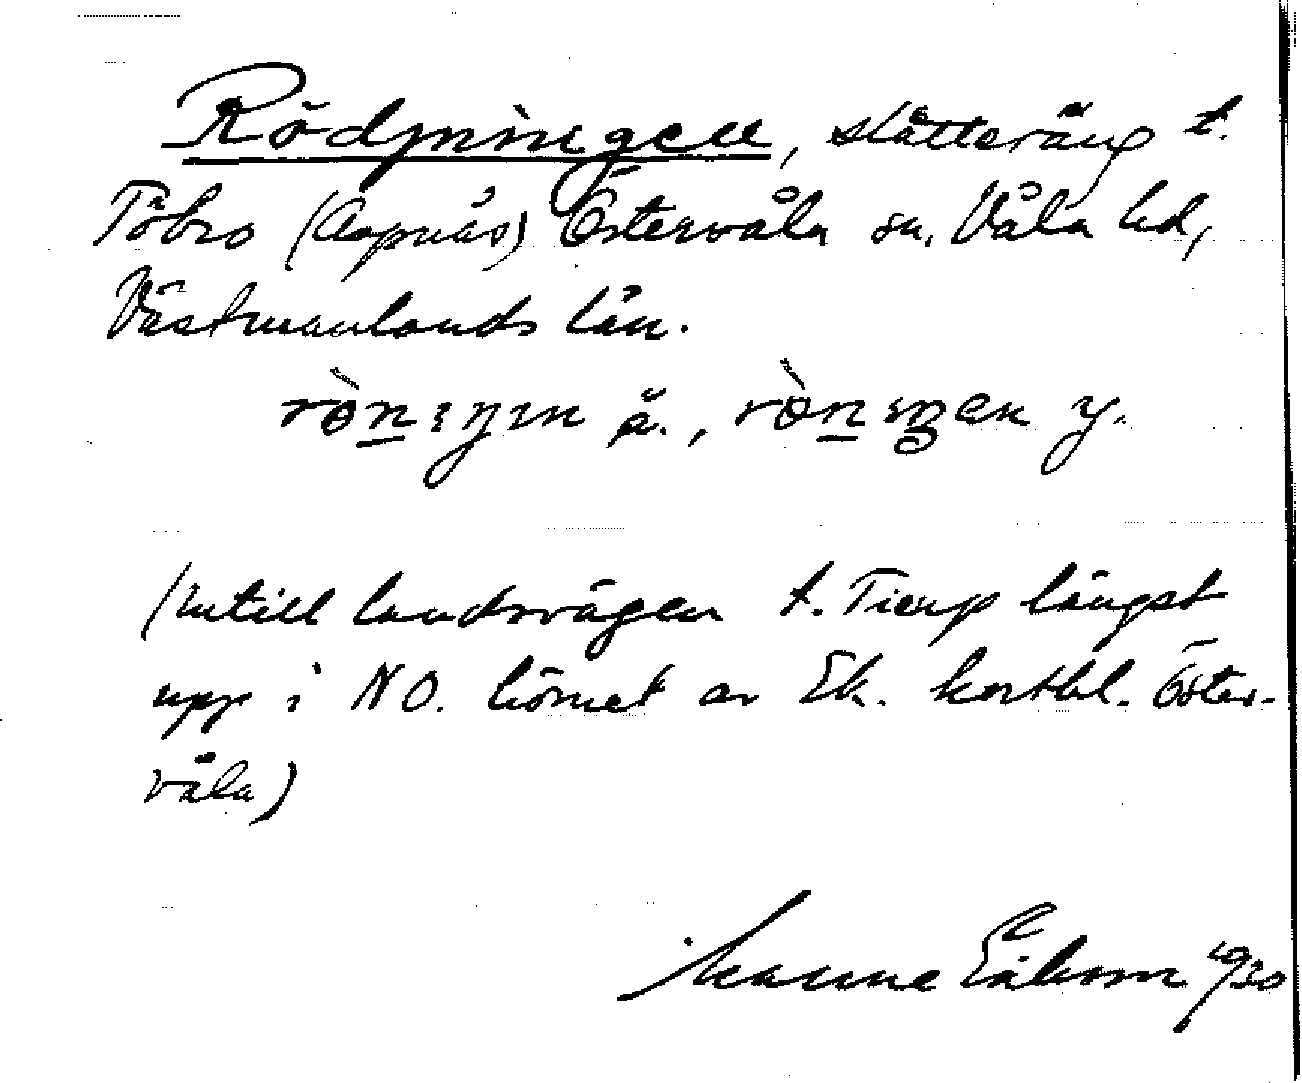 Rödjningen, slåtteräng t.
Töbro (Aspnäs) Östervåla sn, Våla hd,
Västmanlands län.
rò̤n ıŋın ä., rò̤n ıŋen y.
(intill landsvägen t. Tierp längst
upp i NO. hörnet av Ek. kartbl. Öster-
våla)
Manne Eriksson 1930